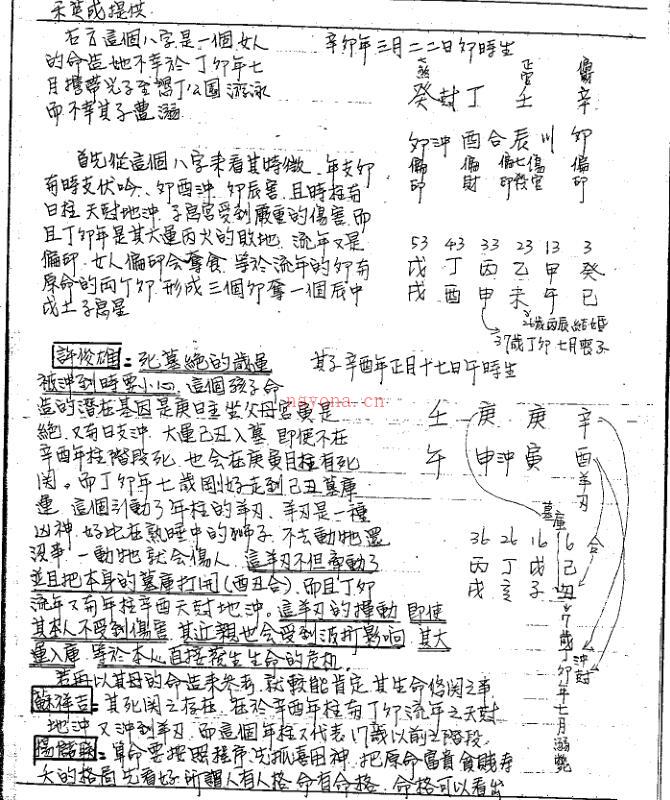 右方這個八字是一個女人
的命造她不幸於丁卯年七
月攜帶兒子至墾丁公園游泳
而不幸其子遭溺
辛卯年三月二二日卯時生
七煞 正官 偏財
癸 封 丁 壬 辛
卯 沖 酉 合 辰 川 卯
偏印 偏財 偏印 七殺 傷官 偏印
53 43 33 23 13 3
戊 丁 丙 乙 甲 癸
戌 酉 申 未 午 巳
26歲丙辰結婚
37歲丁卯七月喪子
首先從這個八字來看其特徵、年支卯
有時支伏吟、卯酉沖、卯辰害、且時柱有
日柱天尅地沖、子息宮受到嚴重的傷害、而
且丁卯年是其大運丙火的敗地、流年又是
偏印、女人偏印會奪食、等於流年的卯有
原命的兩丁卯、形成三個卯奪一個辰中
戊土子息星
許俊雄：死墓絕的歲運
其子辛酉年正月十七日午時生
被沖到時要小心、這個孩子命
造的潛在基因是庚日主坐父母宮寅是
絕、又有日支沖、大運己丑入墓、即使不在
辛酉年柱階段死、也會在庚寅月柱有死
関。而丁卯年七歲剛好走到己丑墓庫
運、這個引動了年柱的羊刃、羊刃是一種
凶神、好比在熟睡中的獅子、不去動牠還
沒事、一動牠就會傷人、這羊刃不但牽動了
並且把本身的墓庫打開(酉丑合)、而且丁卯
流年又有年柱辛酉天尅地沖。這羊刃的擾動、即使
其本人不受到傷害、其近親也會受到波打影响、其大
運入庫、等於本心直接發生生命的危机。
壬 庚 庚 辛
午 申 沖 寅 酉 羊刃
墓庫
合
36 26 16 6
丙 丁 戊 己
戌 亥 子 丑
7歲丁卯年七月溺斃
沖尅
若再以其母的命造來參考、就較能肯定其生命攸関之事
蘇祥吉：其死関之存在、在於辛酉年柱有丁卯流年之天尅
地沖、又沖到羊刃、而這個年柱又代表17歲以前之階段。
算命要按照程序、先抓喜用神、把原命富貴貧賤壽
夭的格局先看好、所謂人有人格、命有命格、命格可以看出
ngyona.cn